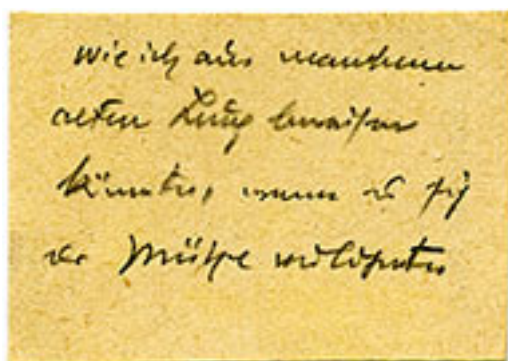 wie ich aus manchem
alten Zeug beweisen
könnte, wenn es sich
der Mühe